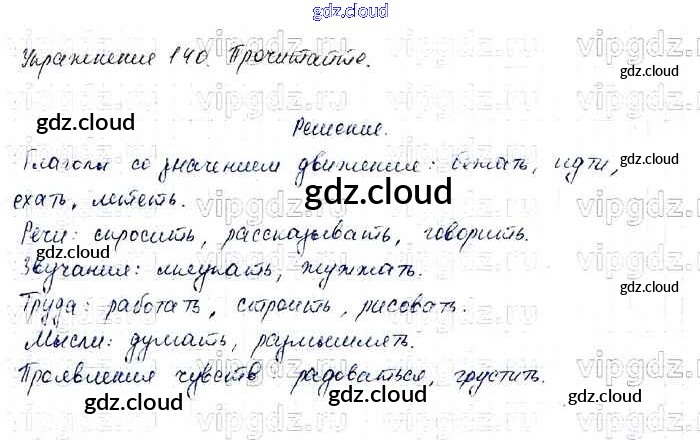 gdz.cloud
Упражнение 140. Прочитайте.
gdz.cloud
gdz.cloud
Решение.
Глаголы со значением движения: бежать, идти,
gdz.cloud
ехать, лететь.
gdz.cloud
Речи: спросить, рассказывать, говорить.
gdz.cloud
Звучания: мяукать, жужжать.
gdz.cloud
Труда: работать, строить, рисовать.
gdz.cloud
Мысли: думать, размышлять.
Проявления чувств: радоваться, грустить.
gdz.cloud
gdz.cloud
gdz.cloud
gdz.cloud